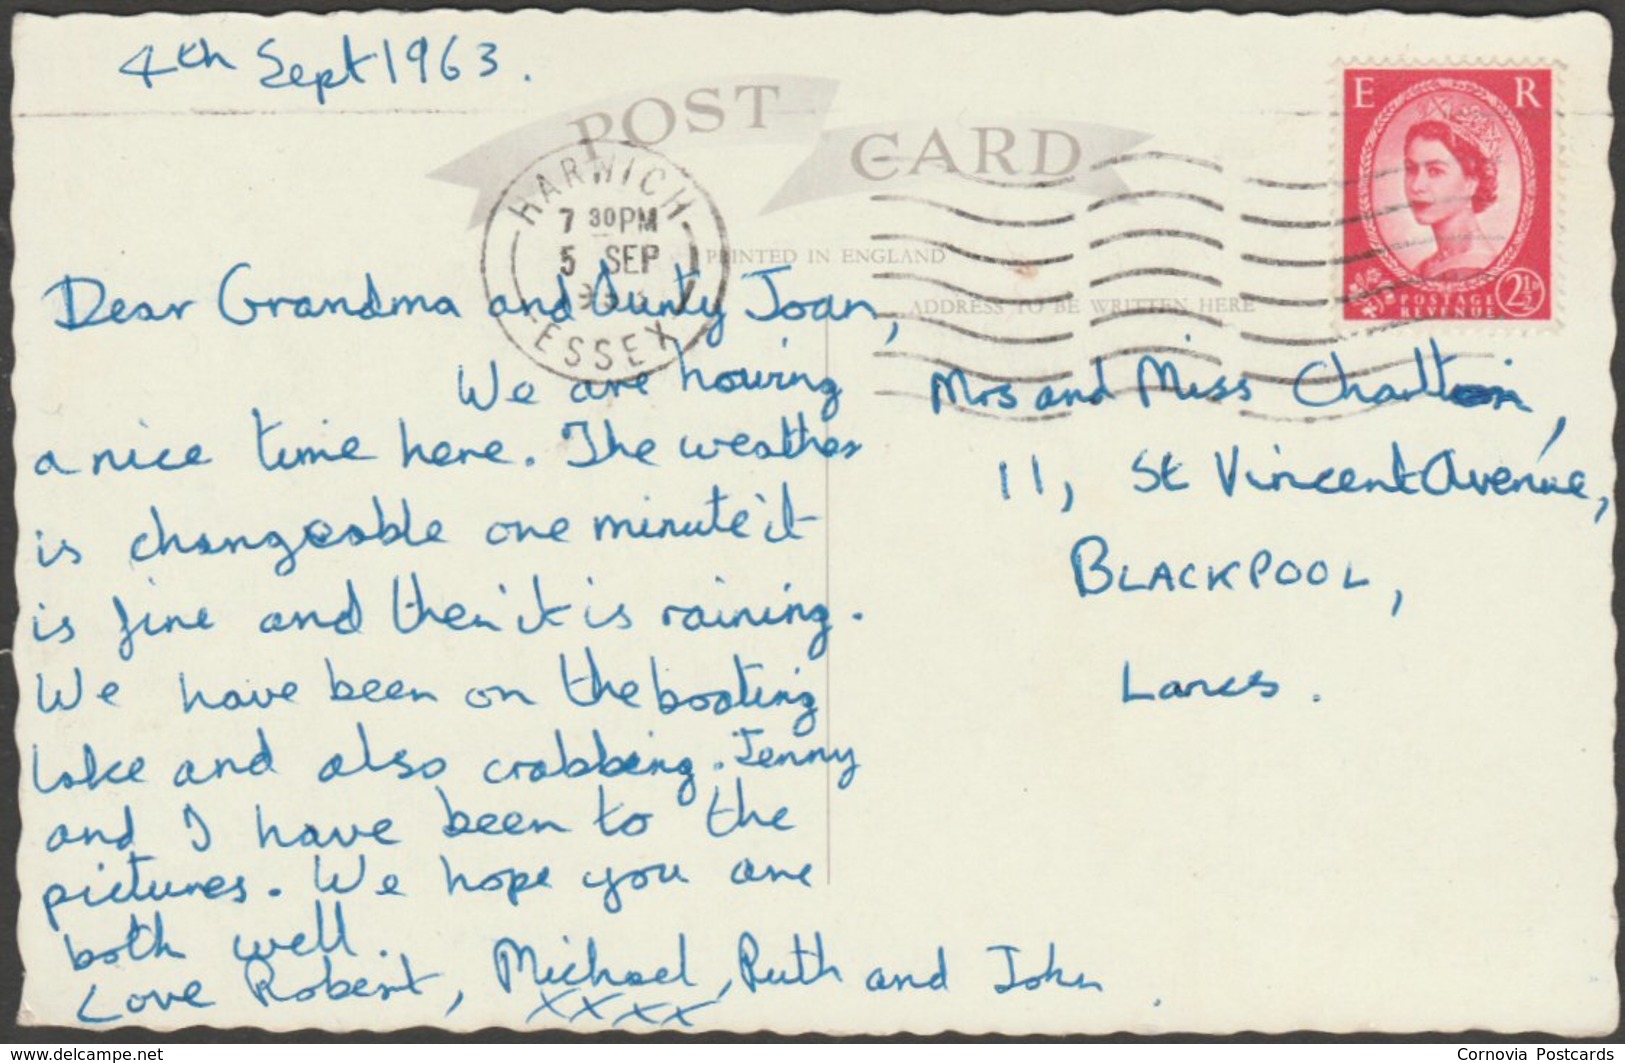 4th Sept 1963.
POST CARD
HARWICH
7 30PM
5 SEP
ESSEX
PRINTED IN ENGLAND
ADDRESS TO BE WRITTEN HERE
E R
POSTAGE
REVENUE
2½
Dear Grandma and Aunty Joan,
We are having
a nice time here. The weather
is changeable one minute it
is fine and then it is raining.
We have been on the boating
lake and also crabbing. Jenny
and I have been to the
pictures. We hope you are
both well.
Love Robert, Michael, Ruth and John.
xxxx
Mrs and Miss Charlton,
11, St Vincent Avenue,
BLACKPOOL,
Lancs.
delcampe.net
Cornovia Postcards